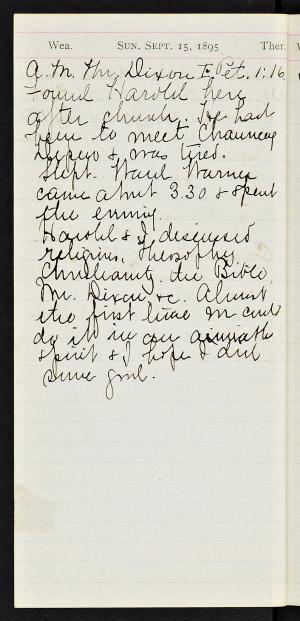 Wea. SUN. SEPT. 15, 1895 Ther.
A.M. Mr. Dixon I Pet. 1:16
Found Harold here
after church. He had
been to meet Chauncey
Depew & was tired.
Slept. Warner
came about 3.30 & spent
the evening.
Harold & I discussed
religion, theosophy,
Christianity, the Bible,
Mr. Dixon &c. Almost
the first time we could
do it in an amiable
spirit & I hope I did
some good.